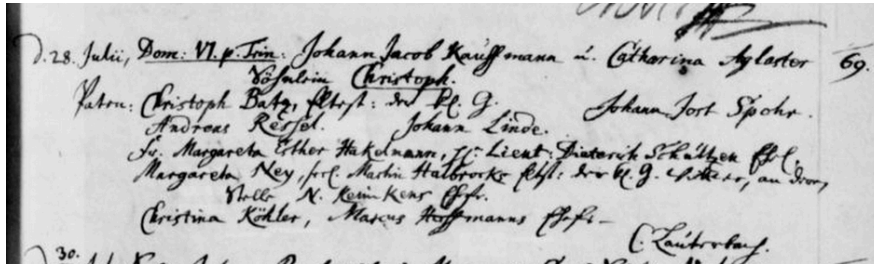 d. 28. Julii, Dom: VI. p. Trin: Johann Jacob Kauffmann u. Catharina Aglaster 69.
Söhnlein Christoph.
Paten: Christoph Batz, Eltest: der kl. G. Johann Jost Spohr.
Andreas Ressel. Johann Linde.
Fr. Margareta Esther Hakelmann, Lieut: Dieterich Schultzen Ehel.
Margareta Ney, Martin Halbrocks Eltst: der kl. G. an deren
Stelle N. Keimkens Ehefr.
Christina Köhler, Marcus Hoffmanns Ehefr.
C. Lauterbach.
30.